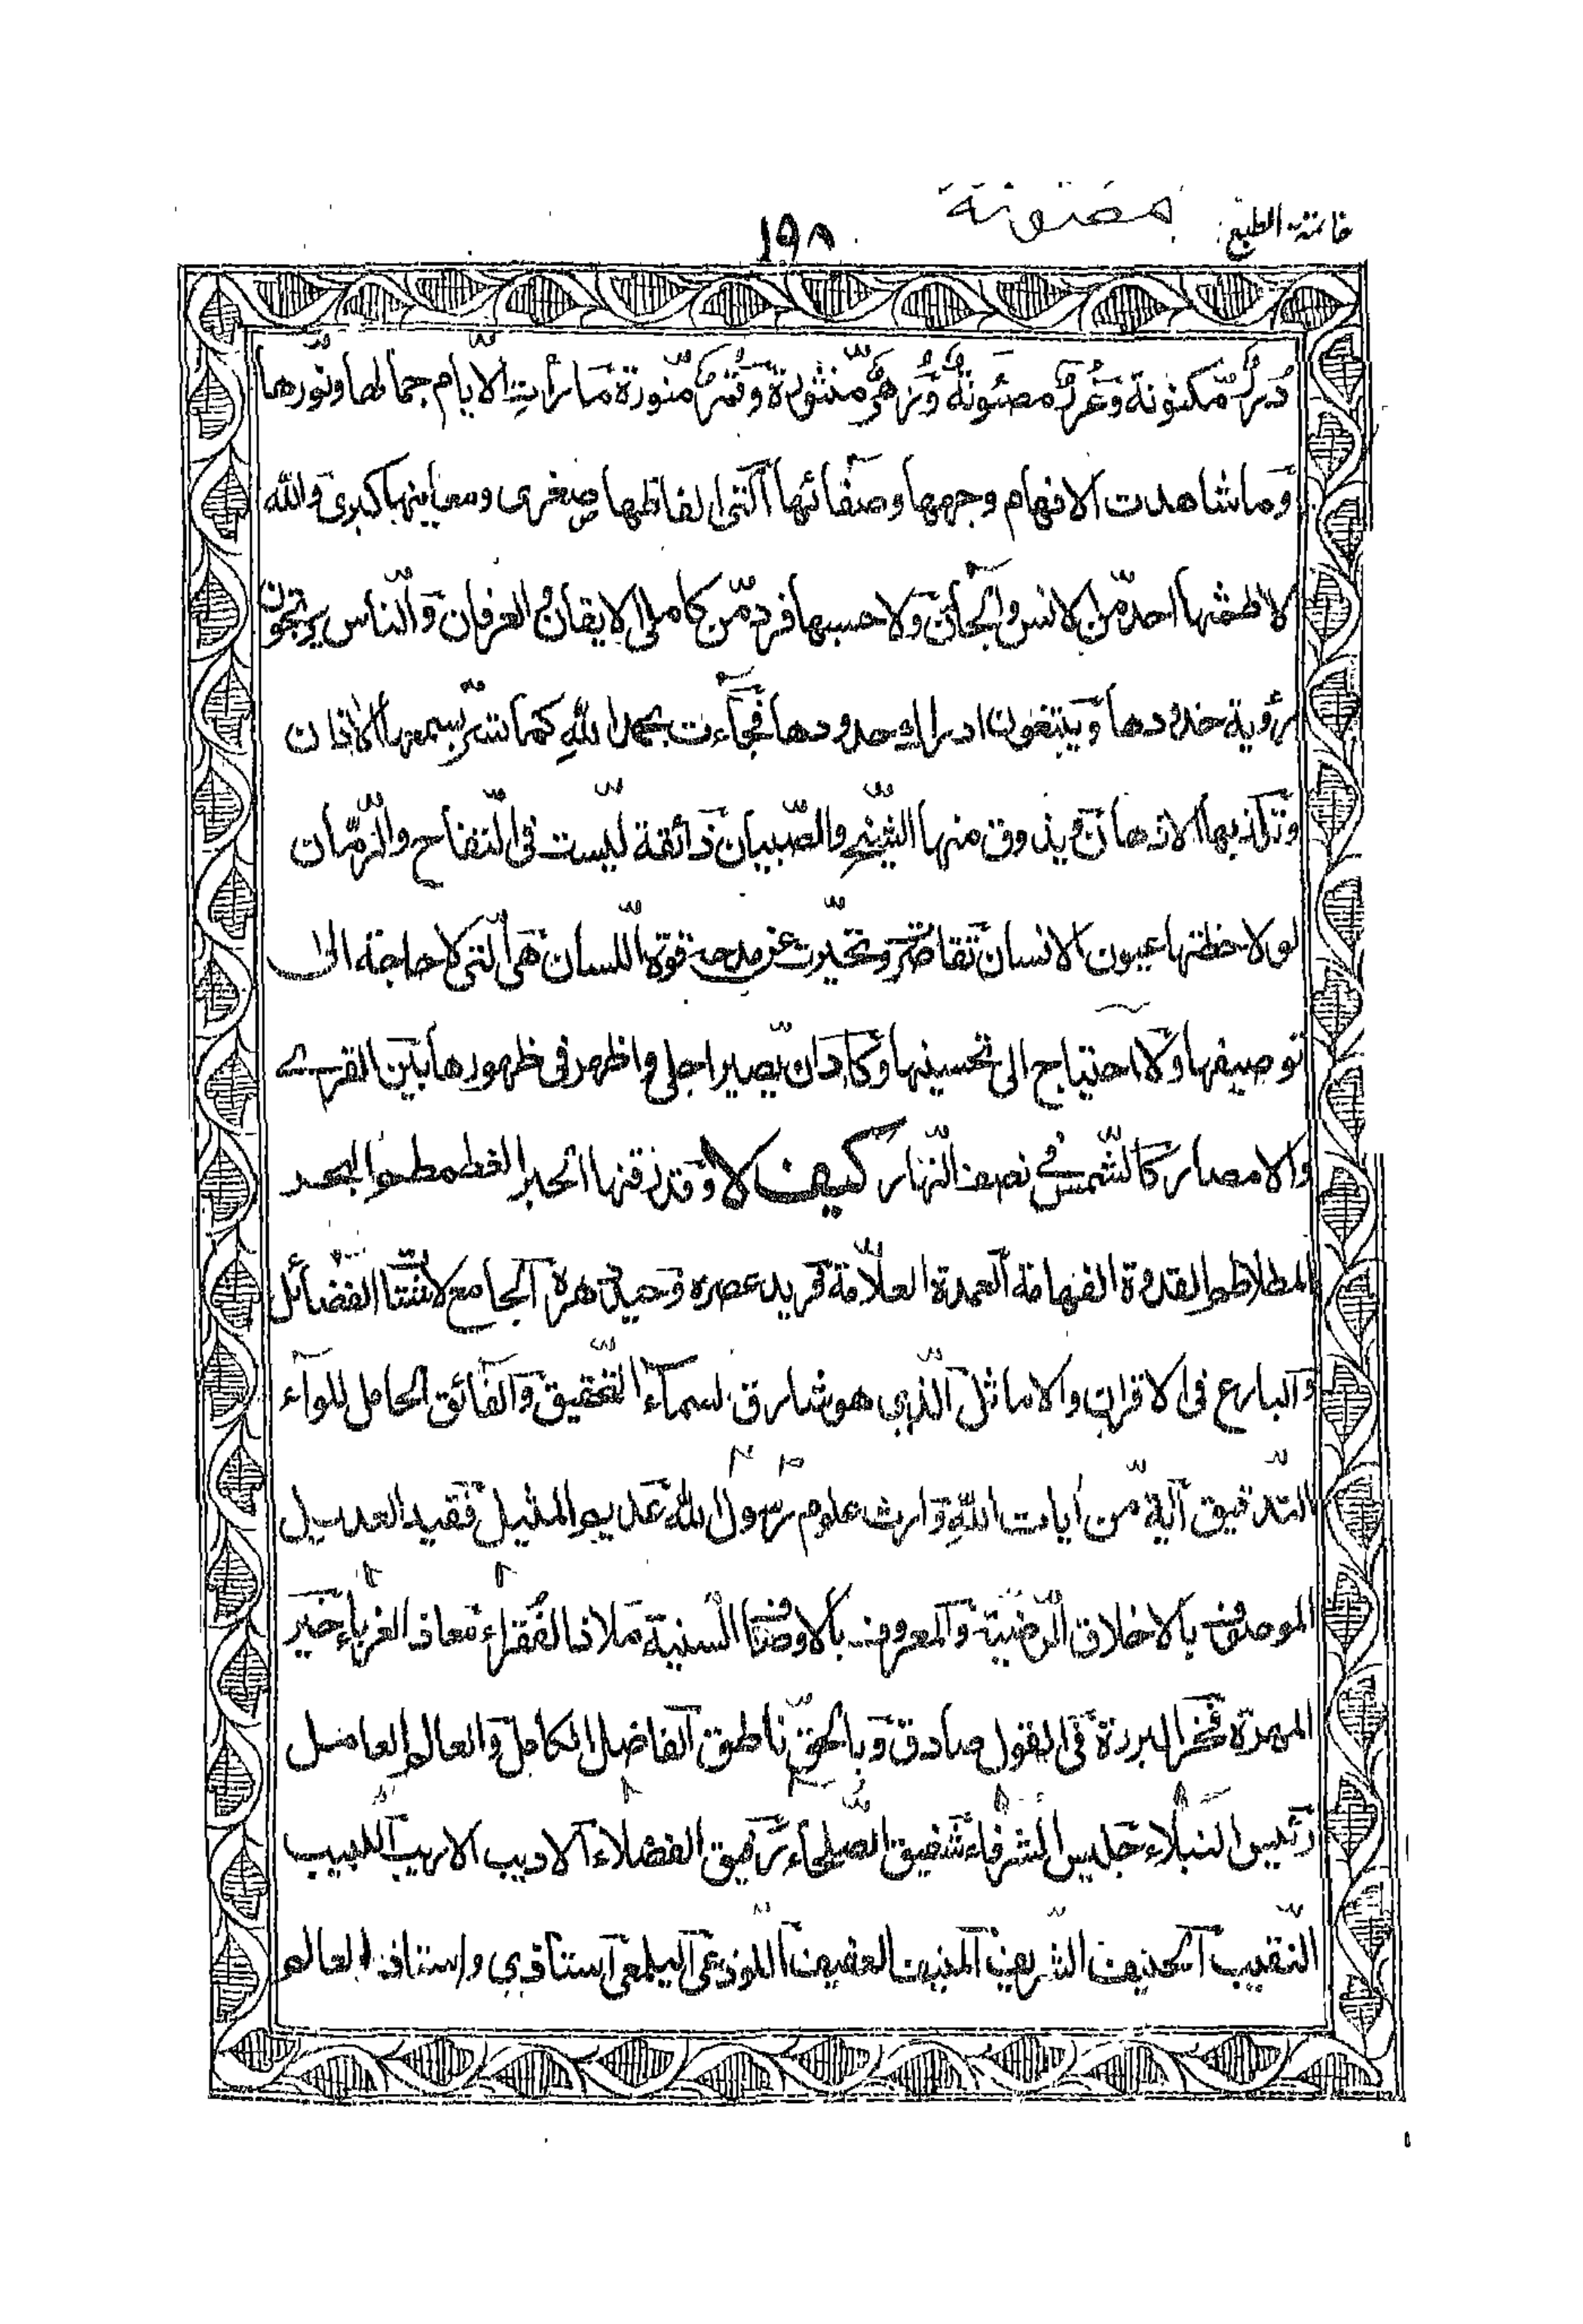 خاتمة الطبع
مصئونة
١٩٨
دُررٌ مّكنونة وَغُررٌ مصئونةٌ وَّزهرٌ مّنثورة وَقمرٌ مّنورة مَا رأيتِ الايّام جمالها ونوّرها
وَما شاهدت الافهام وجهها وصَفائها آلتى الفاظها صغرى ومعاينها كبرى وَالله
لا طمثها احدٌ مّن الانس والجآنّ وَلا حسبها فردٌ مّن كاملى الايقان والعرفان وَالنّاس يرتجون
رؤية خدودها وَيبتغون ادراك حدودها فجآءت بحمد اللهِ كما تسرّ بسمعها الاٰذان
وَتلذ بها الاذهان ويذوق منها الشّيخ والصّبيان ذائقة ليست فى التّفاح والرّمّان
لو لاحظتها عيون الانسان تقاصَرَ وَتحيّرت عن مدحه قوة اللّسان هَى الّتى لا حاجة الىٰ
توصيفها وَلا احتياج الى تحسينها وَكاد ان يّصير اجلى واظهر فى ظهورها بَين القرى
والامصار كَالشّمس فى نصف النّهار كيف لا وَقد زقنها الحبر الغطمطم البحر
المطلاطم القدوة الفهامة اَلعمدة العلّامة فريد عصره وَحيد دهره اَلجامع لاشتّا الفضائل
وَالبارع فى الاقران والاماثل اَلّذى هو شارق لسمآء التّحقيق وَالفائق الحامل للوآء
التّدقيق آية مّن اٰيات اللهِ وَارث علوم رسول الله عَديم المثيل فَقيد العديل
الموصوف بالاخلاق الرّضيّة وَالمعروف بالاوصاف السّنية مَلاذ الفقراء مَعاذ الغرباء خَير
المهرة فَخر البررة فَى القول صادق وَبالحقّ ناطق اَلفاضل الكامل وَالعالم العامل
رَئيس النبلاء جَليس الشرفاء شَفيق الصّلحاء رَفيق الفضلاء اَلاديب الاريب اللبيب
النّقيب اَلحنيف الشّريف اَلمنيف العفيف اللّوذعى اَليلمعى استاذى واستاذ العالم